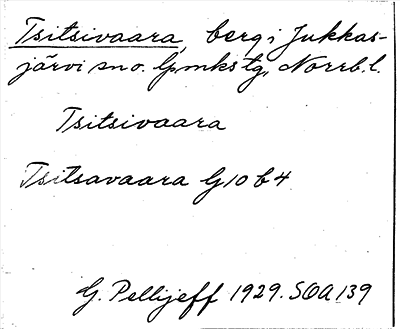 Tsitsivaara, berg i Jukkas-
järvi sn o. lpmkstg, Norrb. l.
Tsitsivaara
Tsitsavaara G10 b4
G. Pellijeff 1929. SOA 139